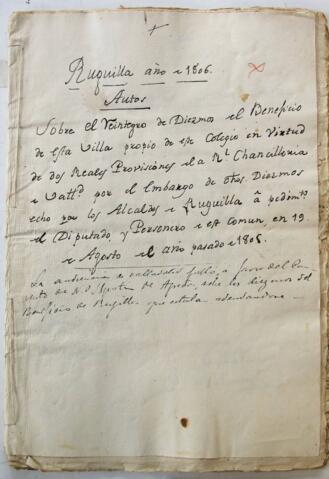 +
Ruguilla año de 1806.
Autos
Sobre el Reintegro de Diezmos del Beneficio
de esta Villa propio de este Colegio en Virtud
de dos Reales Provisiones de la Rl. Chancilleria
de Valld. por el Embargo de dhos. Diezmos
echo por los Alcaldes de Ruguilla â pedimto.
del Diputado, y Personero de est comun, en 19
de Agosto del año pasado de 1805.
La audiencia de valladolid falló, a favor del
de N. S. de sobre los diezmos del
Beneficio de Ruguilla que estaba